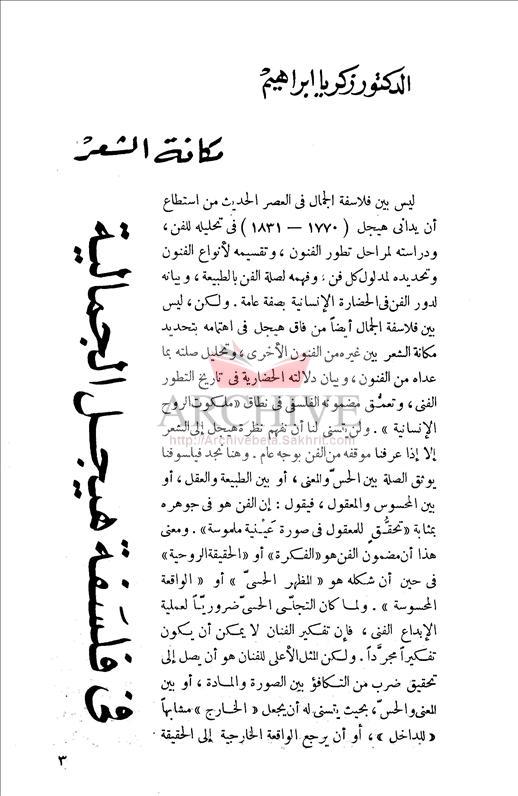 الدكتور زكريا ابراهيم
مكانة الشعر
فى فلسفة هيجل الجمالية
ليس بين فلاسفة الجمال فى العصر الحديث من استطاع
أن يدانى هيجل ( ١٧٧٠ — ١٨٣١ ) فى تحليله للفن ،
ودراسته لمراحل تطور الفنون ، وتقسيمه لأنواع الفنون
وتحديده لمدلول كل فن ، وفهمه لصلة الفن بالطبيعة ، وبيانه
لدور الفن فى الحضارة الإنسانية بصفة عامة . ولكن ، ليس
بين فلاسفة الجمال أيضاً من فاق هيجل فى اهتمامه بتحديد
مكانة الشعر بين غيره من الفنون الأخرى ، وتحليل صلته بما
عداه من الفنون ، وبيان دلالته الحضارية فى تاريخ التطور
الفنى ، وتعمُّق مضمونه الفلسفى فى نطاق « ملكوت الروح
الإنسانية » . ولن يتسنى لنا أن نفهم نظرة هيجل إلى الشعر
إلا إذا عرفنا موقفه من الفن بوجه عام . وهنا نجد فيلسوفنا
يوثق الصلة بين الحسّ والمعنى ، أو بين الطبيعة والعقل ، أو
بين المحسوس والمعقول ، فيقول : إن الفن هو فى جوهره
بمثابة «تحقُّق للمعقول فى صورة عَيْنية ملموسة» . ومعنى
هذا أن مضمون الفن هو «الفكرة» أو «الحقيقة الروحية»
فى حين أن شكله هو « المظهر الحسىّ » أو « الواقعة
المحسوسة » . ولما كان التجلّى الحسىّ ضروريّاً لعملية
الإبداع الفنى ، فإن تفكير الفنان لا يمكن أن يكون
تفكيراً مجرَّداً . ولكن المثل الأعلى للفنان هو أن يصل إلى
تحقيق ضرب من التكافؤ بين الصورة والمادة ، أو بين
المعنى والحسّ ، بحيث يتسنى له أن يجعل « الخارج » مشابهاً
« للداخل » ، أو أن يرجع الواقعة الخارجية إلى الحقيقة
٣
ARCHIVE
http://Archivebeta.Sakhrit.com